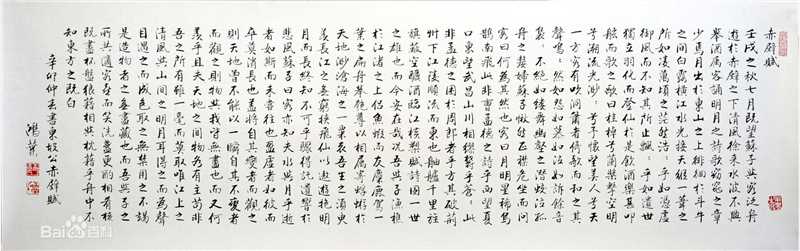 赤壁賦
壬戌之秋七月既望蘇子與客泛舟
遊於赤壁之下清風徐來水波不興
舉酒屬客誦明月之詩歌窈窕之章
少焉月出於東山之上徘徊於斗牛
之間白露橫江水光接天縱一葦之
所如凌萬頃之茫然浩浩乎如憑虛
御風而不知其所止飄飄乎如遺世
獨立羽化而登仙於是飲酒樂甚叩
舷而歌之歌曰桂棹兮蘭槳擊空明
兮溯流光渺渺兮予懷望美人兮天
一方客有吹洞簫者倚歌而和之其
聲嗚嗚然如怨如慕如泣如訴餘音
裊裊不絕如縷舞幽壑之潛蛟泣孤
舟之嫠婦蘇子愀然正襟危坐而問
客曰何為其然也客曰月明星稀烏
鵲南飛此非曹孟德之詩乎西望夏
口東望武昌山川相繆鬱乎蒼蒼此
非孟德之困於周郎者乎方其破荊
州下江陵順流而東也舳艫千里旌
旗蔽空釃酒臨江橫槊賦詩固一世
之雄也而今安在哉況吾與子漁樵
於江渚之上侶魚蝦而友麋鹿駕一
葉之扁舟舉匏尊以相屬寄蜉蝣於
天地渺滄海之一粟哀吾生之須臾
羨長江之無窮挾飛仙以遨遊抱明
月而長終知不可乎驟得託遺響於
悲風蘇子曰客亦知夫水與月乎逝
者如斯而未嘗往也盈虛者如彼而
卒莫消長也蓋將自其變者而觀之
則天地曾不能以一瞬自其不變者
而觀之則物與我皆無盡也而又何
羨乎且夫天地之間物各有主苟非
吾之所有雖一毫而莫取惟江上之
清風與山間之明月耳得之而為聲
目遇之而成色取之無禁用之不竭
是造物者之無盡藏也而吾與子之
所共適客喜而笑洗盞更酌肴核
既盡杯盤狼藉相與枕藉乎舟中不
知東方之既白
辛卯仲冬書東坡公赤壁賦 鴻
Bai百科